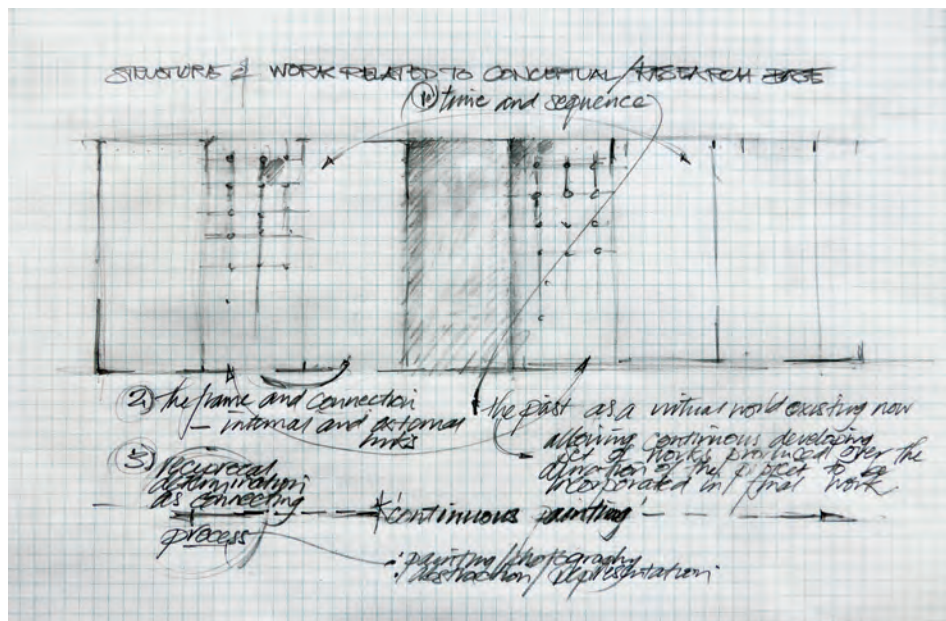 STRUCTURE & WORK RELATED TO CONCEPTUAL/RESEARCH
1. time and sequence
2. the frame and connection
– internal and external
links
the past as a virtual world existing now
allowing continuous developing
set of works produced over the
duration of the project to be
incorporated in final work.
3. reciprocal
determination
as connecting
process
'continuous painting'
: painting/photography
: abstraction/representation